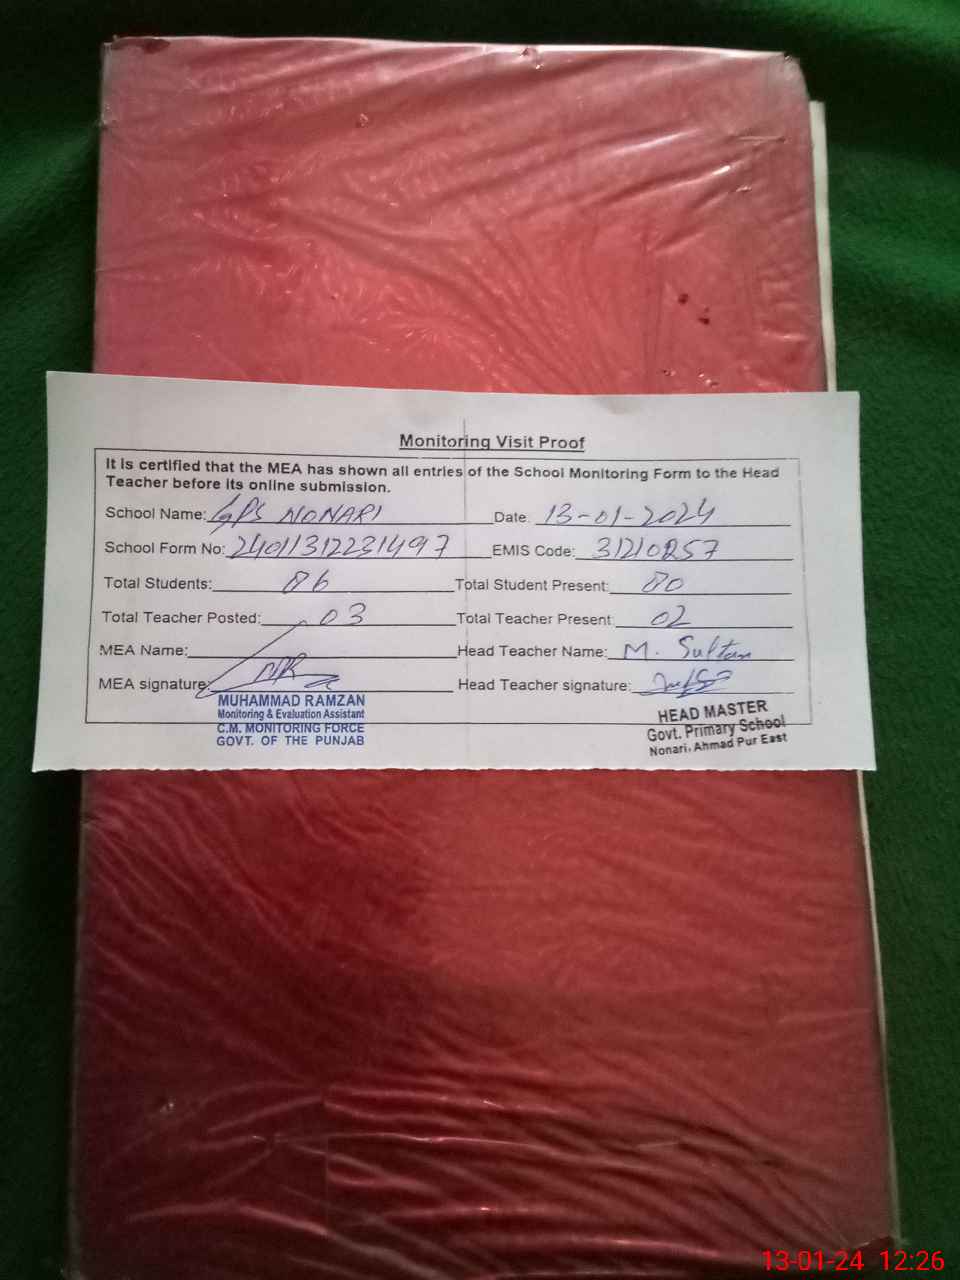 Monitoring Visit Proof
It is certified that the MEA has shown all entries of the School Monitoring Form to the Head
Teacher before its online submission.
School Name: GPS NONARI Date: 13-01-2024
School Form No: 240113122231497 EMIS Code: 31210257
Total Students: 86 Total Student Present: 80
Total Teacher Posted: 03 Total Teacher Present: 02
MEA Name: Head Teacher Name: M. Sultan
MEA signature: Head Teacher signature:
MUHAMMAD RAMZAN
Monitoring & Evaluation Assistant
C.M. MONITORING FORCE
GOVT. OF THE PUNJAB
HEAD MASTER
Govt. Primary School
Nonari, Ahmad Pur East
13-01-24 12:26